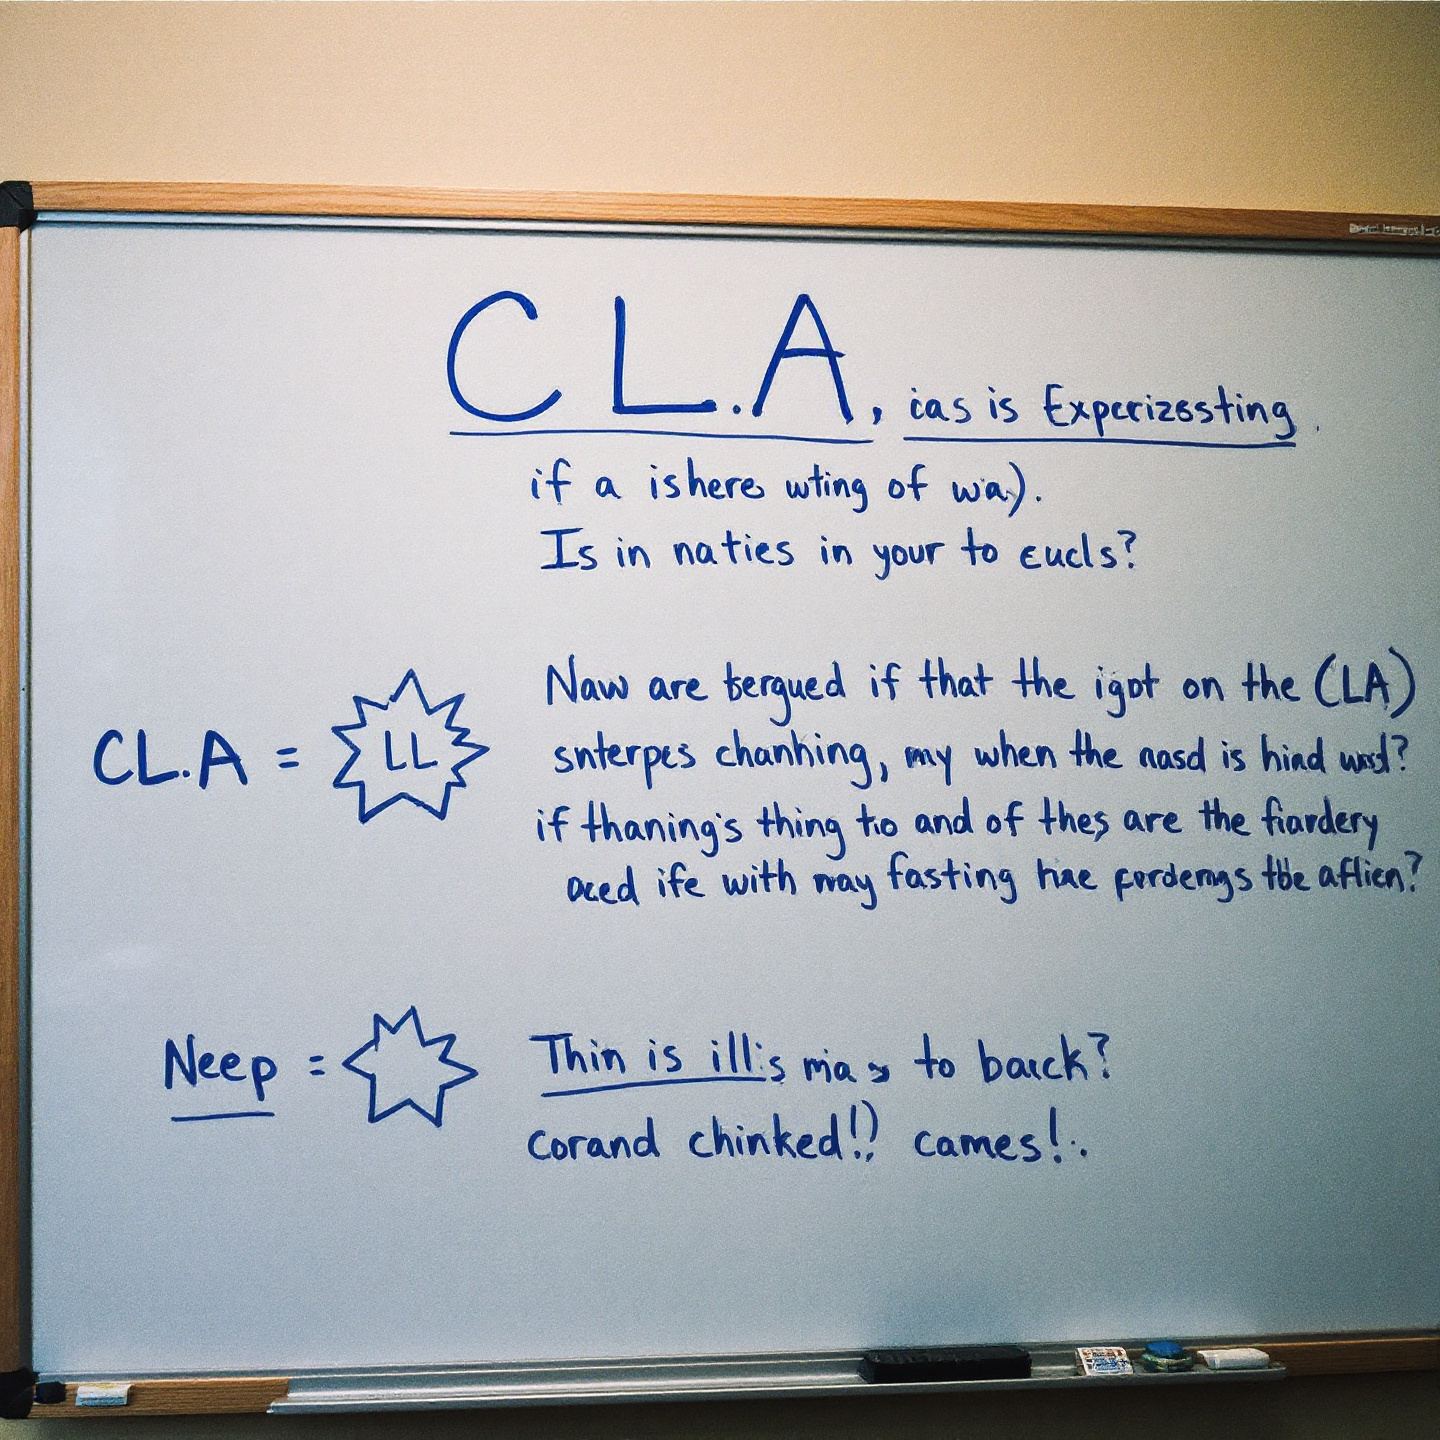 CL.A, cas is Experizesting.
if a ishere wting of wa).
Is in naties in your to eucls?
Naw are bergued if that the igot on the (LA)
CL.A = LL snterpes chanhing, my when the nasd is hind
if thaning's thing to and of thes are the fiardery
aced ife with may fasting hae the aflien?
Neep = Thin is ill:s mia to baick?
corand chinked!) cames!.